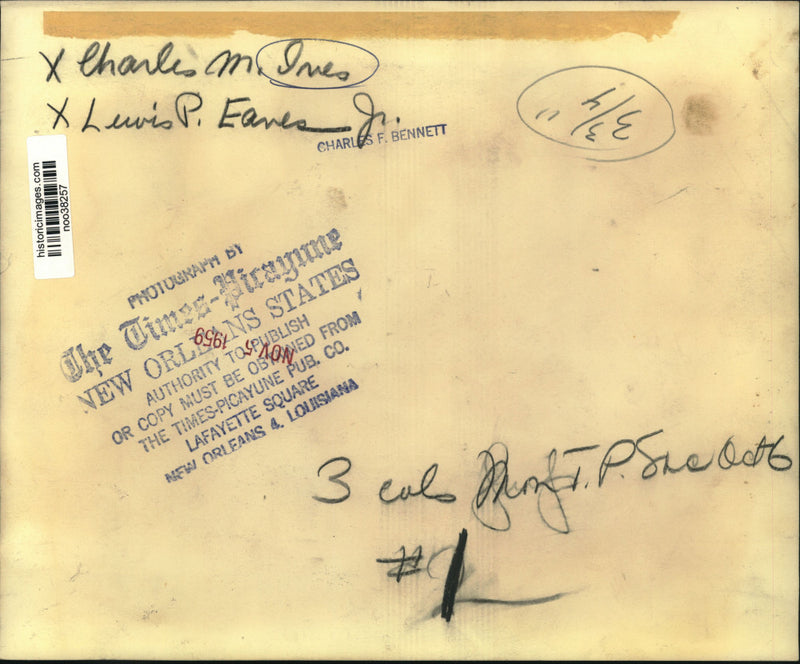 X Charles M. Ives
X Lewis P. Eaves Jr.
CHARLES F. BENNETT
3 3/4"
historicimages.com
noo38257
PHOTOGRAPH BY
The Times-Picayune
NEW ORLEANS STATES
AUTHORITY TO PUBLISH
OR COPY MUST BE OBTAINED FROM
THE TIMES-PICAYUNE PUB. CO.
LAFAYETTE SQUARE
NEW ORLEANS 4, LOUISIANA
NOV 5 1959
3 cols T. P. Oct 6
#1